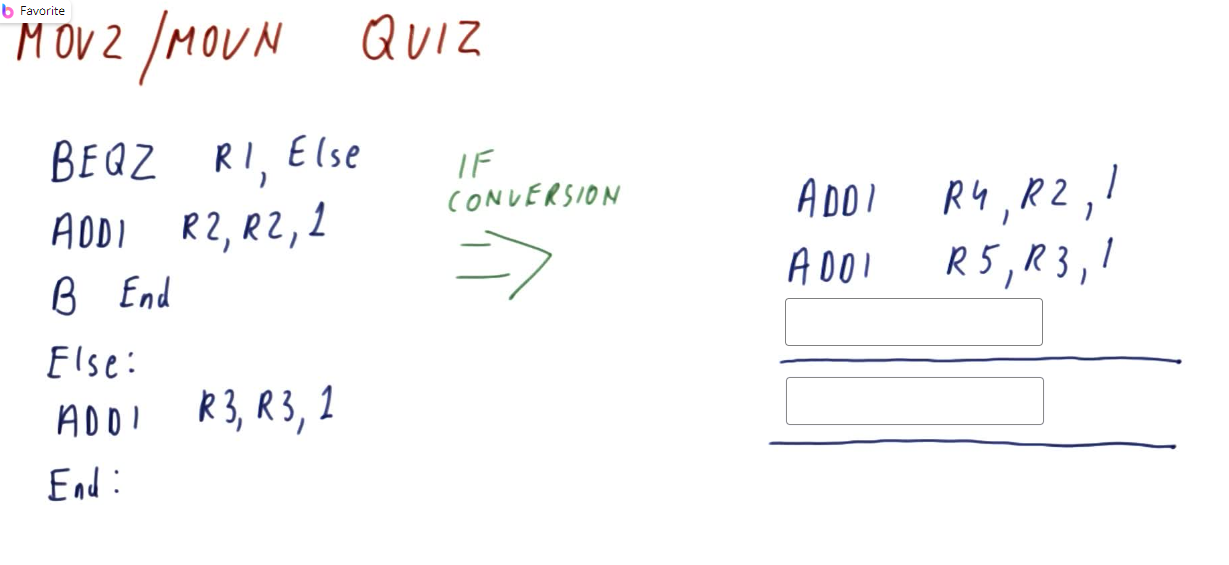 Favorite
MOVZ/MOVN QUIZ
BEQZ R1, Else
ADDI R2, R2, 1
B End
Else:
ADDI R3, R3, 1
End:
IF
CONVERSION
ADDI R4, R2, 1
ADDI R5, R3, 1